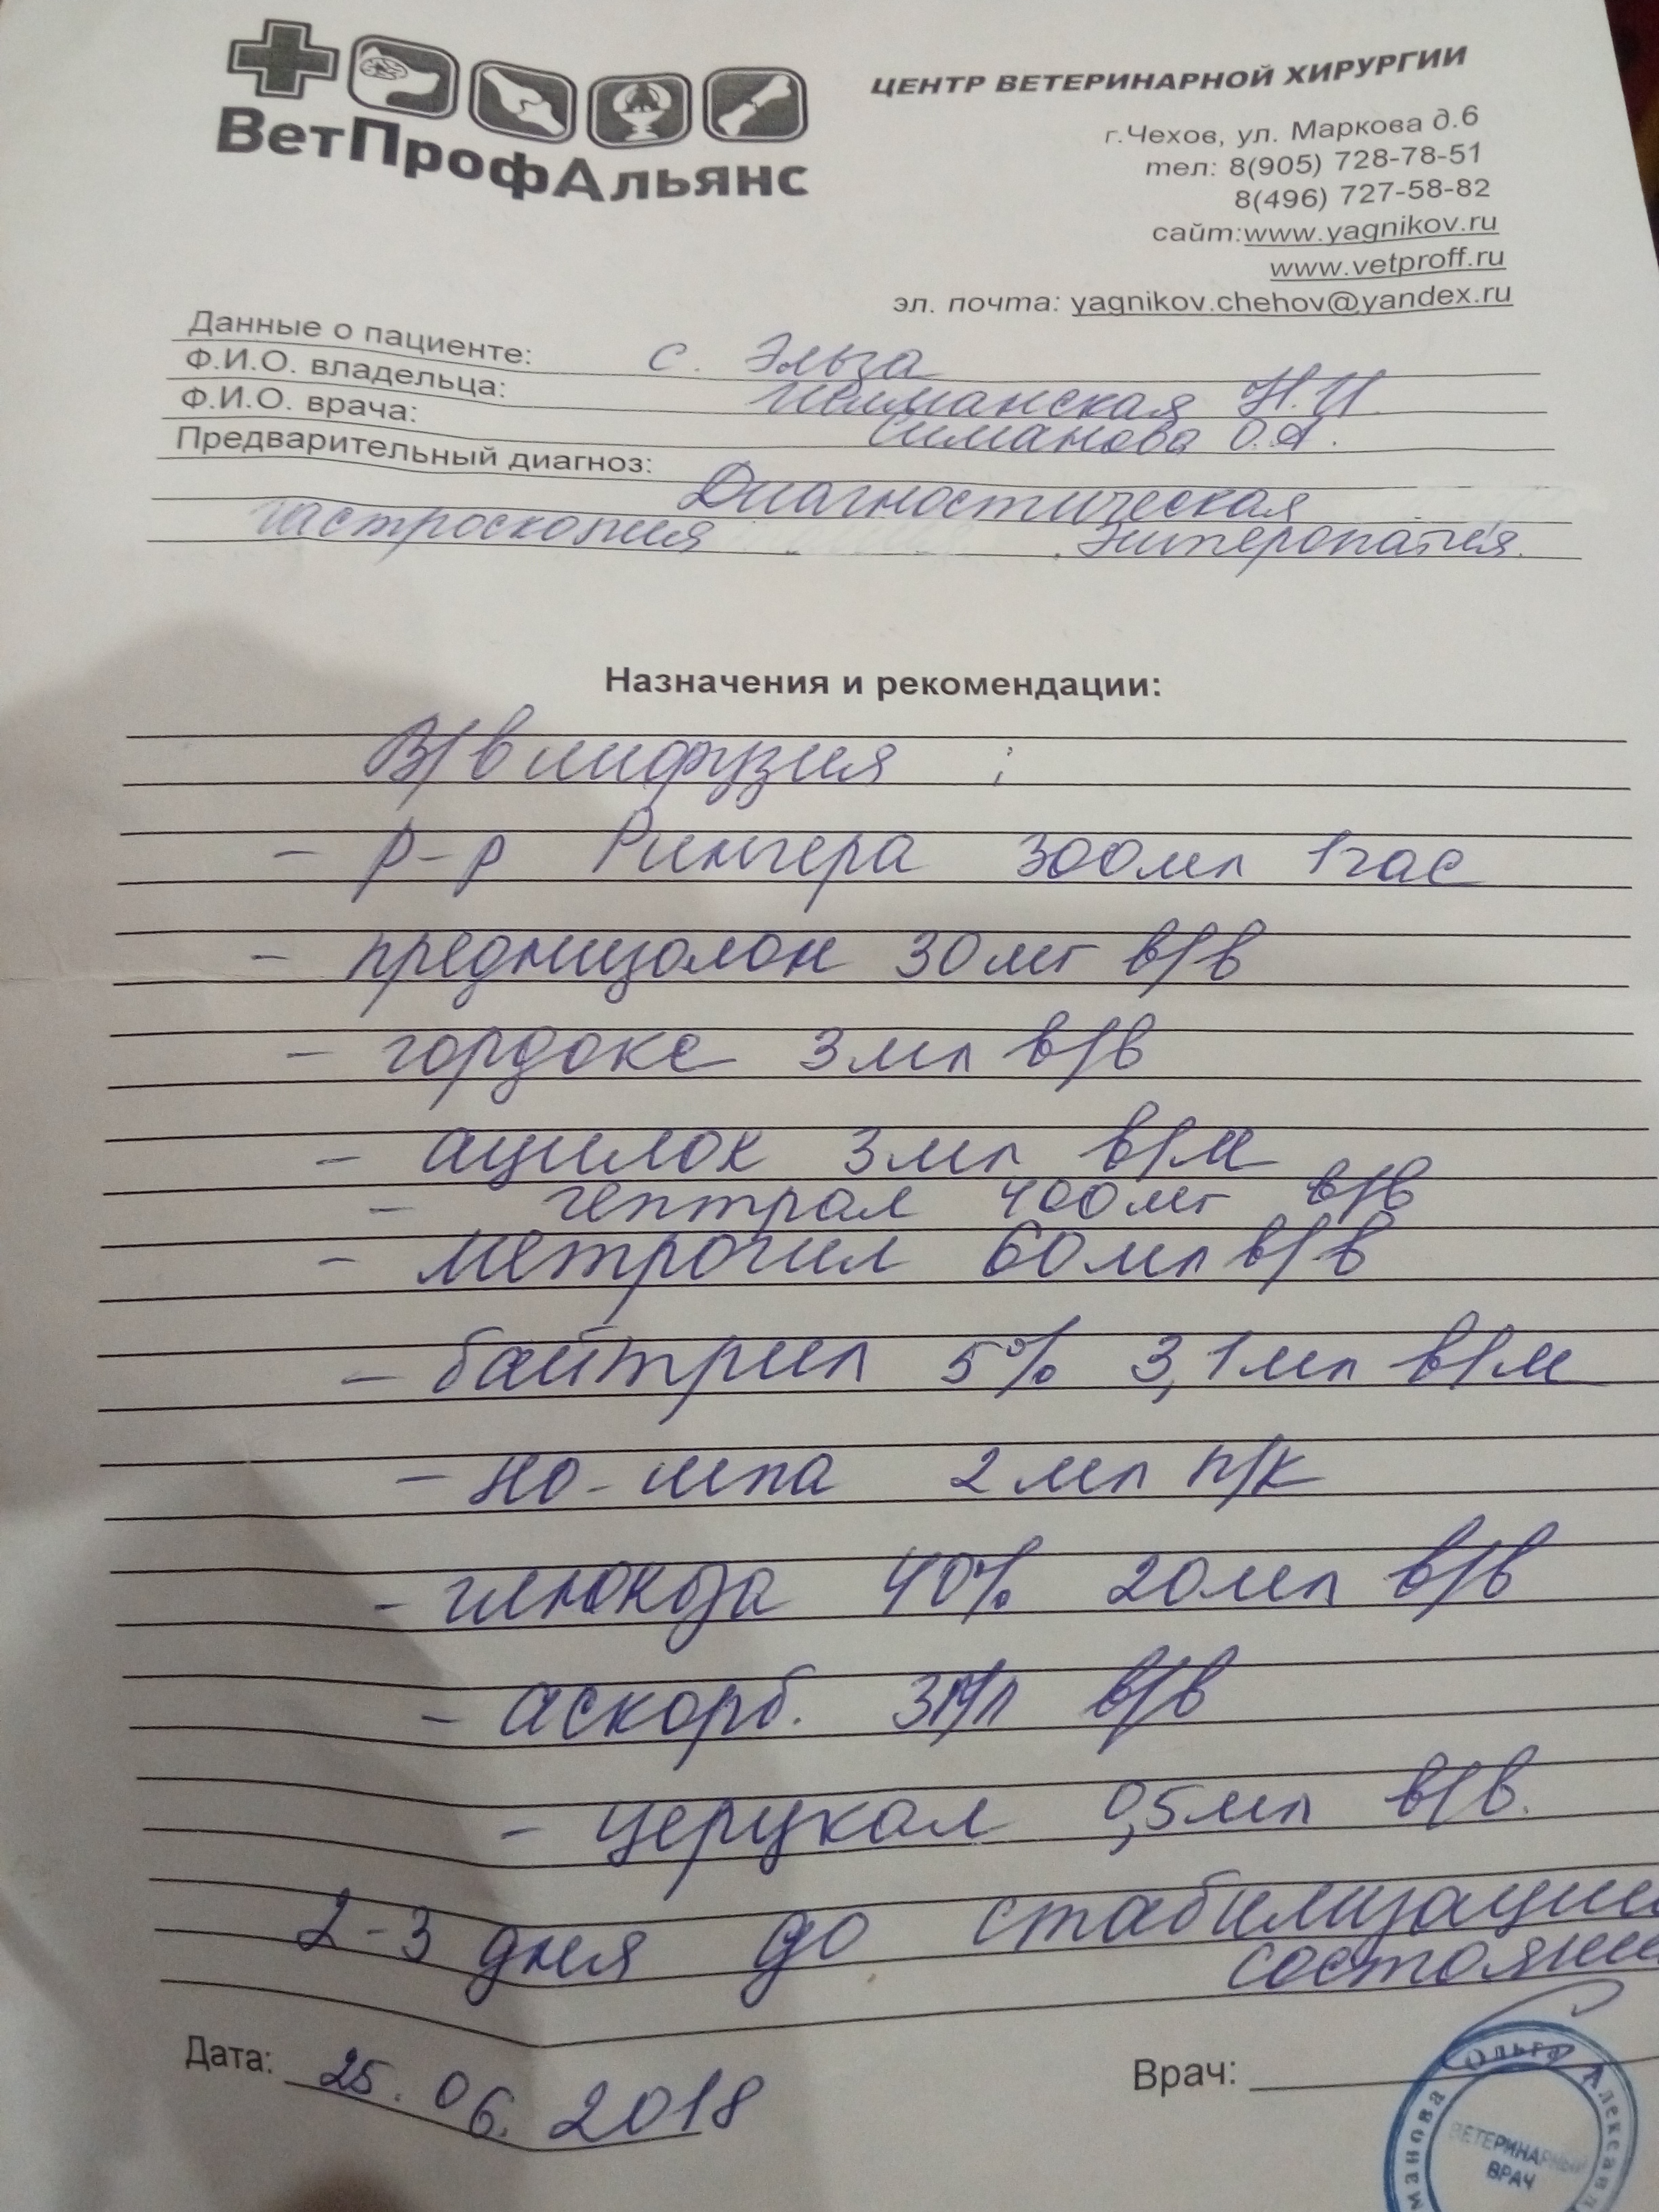 ВетПрофАльянс
ЦЕНТР ВЕТЕРИНАРНОЙ ХИРУРГИИ
г.Чехов, ул. Маркова д.6
тел: 8(905) 728-78-51
8(496) 727-58-82
сайт:www.yagnikov.ru
www.vetproff.ru
эл. почта: yagnikov.chehov@yandex.ru
Данные о пациенте: с. Эльза
Ф.И.О. владельца: Н.И.
Ф.И.О. врача: Симанова О.А.
Предварительный диагноз: Диагностическая
гастроскопия Энтеропатия.
Назначения и рекомендации:
В/в инфузия :
- р-р Рингера 300мл 1час
- преднизолон 30мг в/в
- гордокс 3мл в/в
- ацилок 3мл в/м
- гептрал 400мг в/в
- метрогил 60мл в/в
- байтрил 5% 3,1мл в/м
- но-шпа 2мл п/к
- глюкоза 40% 20мл в/в
- аскорб. 3мл в/в
- церукал 0,5мл в/в.
2-3 дня до стабилизации
состояния
Дата: 25.06.2018
Врач:
манова Ольга Алексан
ВЕТЕРИНАРНЫЙ
ВРАЧ